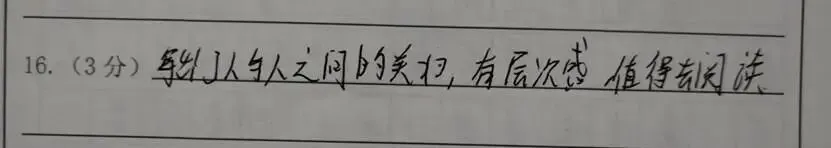 16.（3分）写出了人与人之间的美好,有层次感 值得去阅读